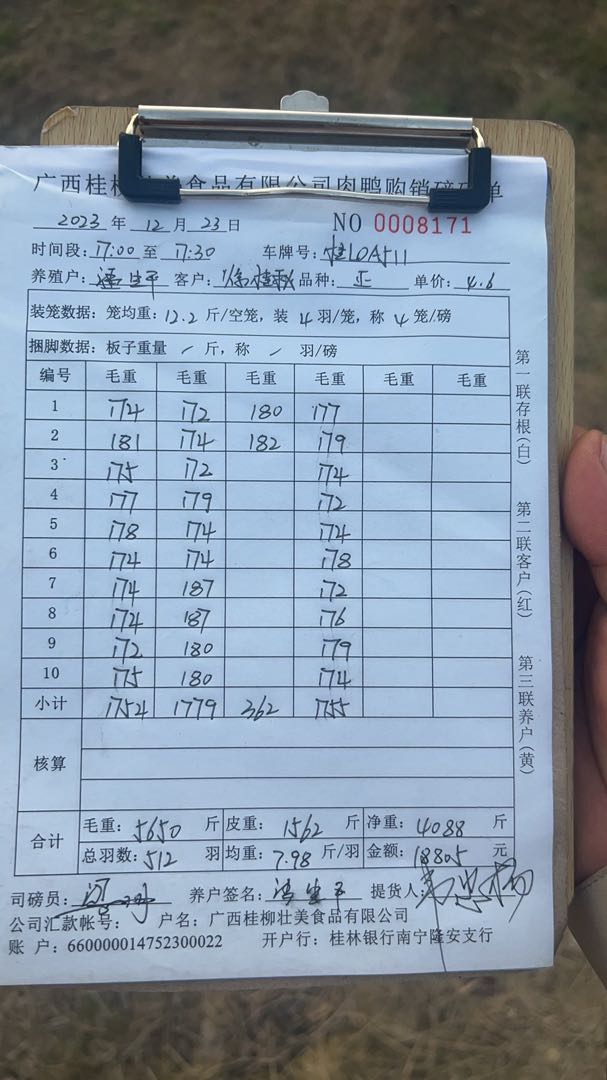 广西桂柳壮美食品有限公司肉鸭购销磅码单
2023 年 12 月 23 日 NO 0008171
时间段: 17:00 至 17:30 车牌号: 桂L0A511
养殖户: 客户: 品种: 正 单价: 4.6
装笼数据: 笼均重: 12.2 斤/空笼, 装 4 羽/笼, 称 4 笼/磅
捆脚数据: 板子重量 / 斤, 称 / 羽/磅
编号 毛重 毛重 毛重 毛重 毛重 毛重
1 174 172 180 177
2 181 174 182 179
3 175 172 174
4 177 179 172
5 178 174 174
6 174 174 178
7 174 187 172
8 174 187 176
9 172 180 179
10 175 180 174
小计 1754 1779 362 1755
核算
合计 毛重: 5650 斤 皮重: 1562 斤 净重: 4088 斤
总羽数: 512 羽 均重: 7.98 斤/羽 金额: 18805 元
司磅员: 养户签名: 提货人:
公司汇款帐号: 户名: 广西桂柳壮美食品有限公司
账 户: 660000014752300022 开户行: 桂林银行南宁隆安支行
第一联存根(白)
第二联客户(红)
第三联养户(黄)